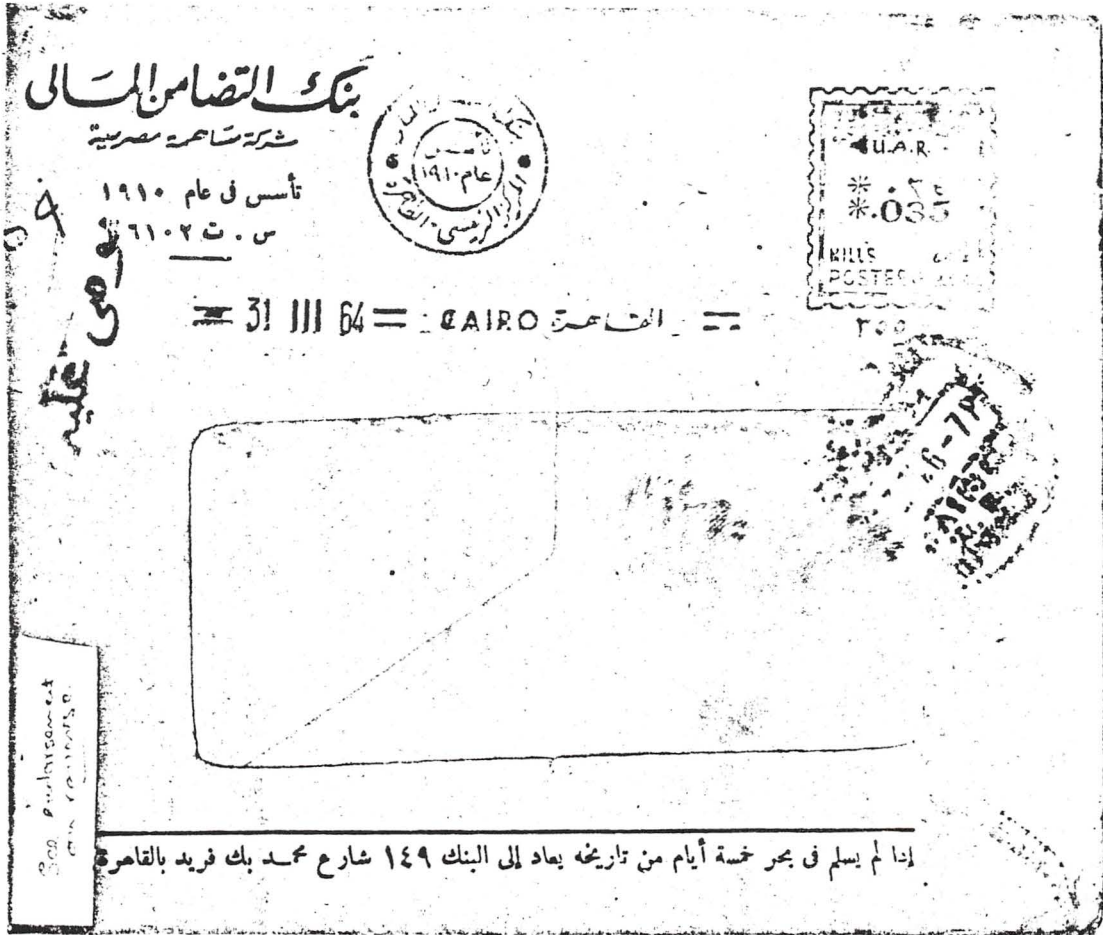 بنك التضامن المالى
شركة مساهمة مصرية
تأسس فى عام ١٩١٠
س . ت ٦١٠٢
موصى عليه
تأسس
عام ١٩١٠
المركز الرئيسى القاهرة
U.A.R.
.035
MILLS
POSTES
= 31 III 64 = CAIRO القاهرة =
6-7P
See
on reverse
إذا لم يسلم فى بحر خمسة أيام من تاريخه يعاد إلى البنك ١٤٩ شارع محمد بك فريد بالقاهرة